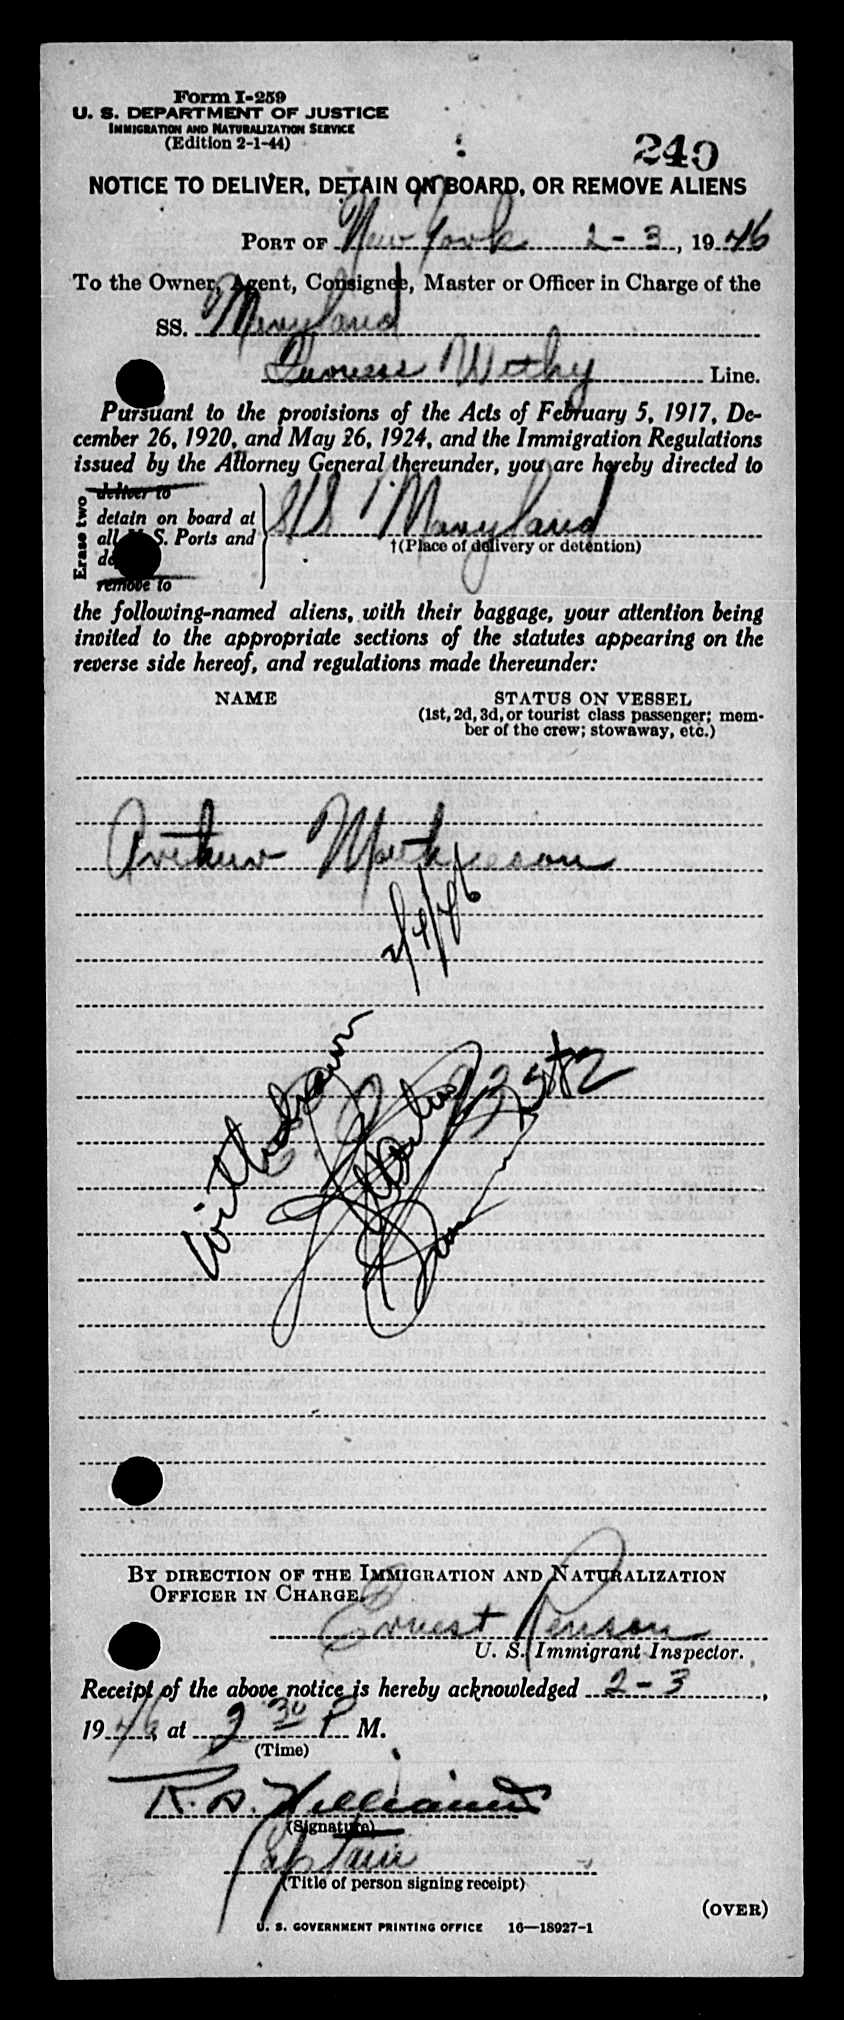 Form I-259
U. S. DEPARTMENT OF JUSTICE
IMMIGRATION AND NATURALIZATION SERVICE
(Edition 2-1-44)
240
NOTICE TO DELIVER, DETAIN ON BOARD, OR REMOVE ALIENS
PORT OF New York 2-3, 1946
To the Owner, Agent, Consignee, Master or Officer in Charge of the
SS. Maryland
Furness Withy Line.
Pursuant to the provisions of the Acts of February 5, 1917, De-
cember 26, 1920, and May 26, 1924, and the Immigration Regulations
issued by the Attorney General thereunder, you are hereby directed to
Erase two
deliver to
detain on board at
all U. S. Ports and
remove to
S/S Maryland
†(Place of delivery or detention)
the following-named aliens, with their baggage, your attention being
invited to the appropriate sections of the statutes appearing on the
reverse side hereof, and regulations made thereunder:
NAME
STATUS ON VESSEL
(1st, 2d, 3d, or tourist class passenger; mem-
ber of the crew; stowaway, etc.)
Arthur
2/4/46
Withdrawn
By DIRECTION OF THE IMMIGRATION AND NATURALIZATION
OFFICER IN CHARGE.
Ernest
U. S. Immigrant Inspector.
Receipt of the above notice is hereby acknowledged 2-3,
1946, at 2 30 P M.
(Time)
R. A. Williams
(Signature)
Captain
(Title of person signing receipt)
(OVER)
U. S. GOVERNMENT PRINTING OFFICE 16—18927-1